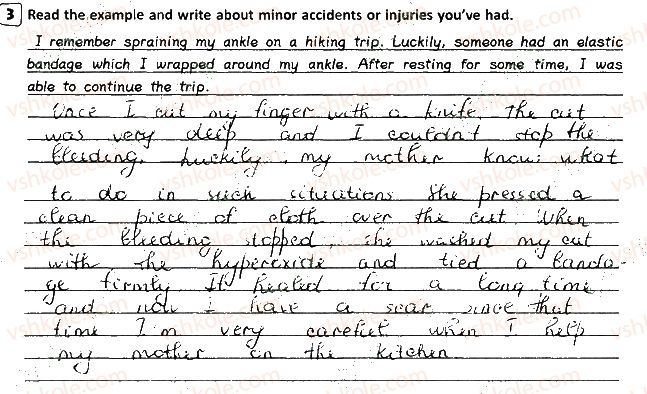 3 Read the example and write about minor accidents or injuries you've had.
I remember spraining my ankle on a hiking trip. Luckily, someone had an elastic
bandage which I wrapped around my ankle. After resting for some time, I was
able to continue the trip.
Once I cut my finger with a knife. The cut
was very deep and I couldn't stop the
bleeding. Luckily, my mother know: what
to do in such situations. She pressed a
clean piece of cloth over the cut. When
the bleeding stopped, she washed my cut
with the hyperoxide and tied a banda-
ge firmly It healed for a long time
and now I have a scar since that
time I'm very careful when I help
my mother on the kitchen